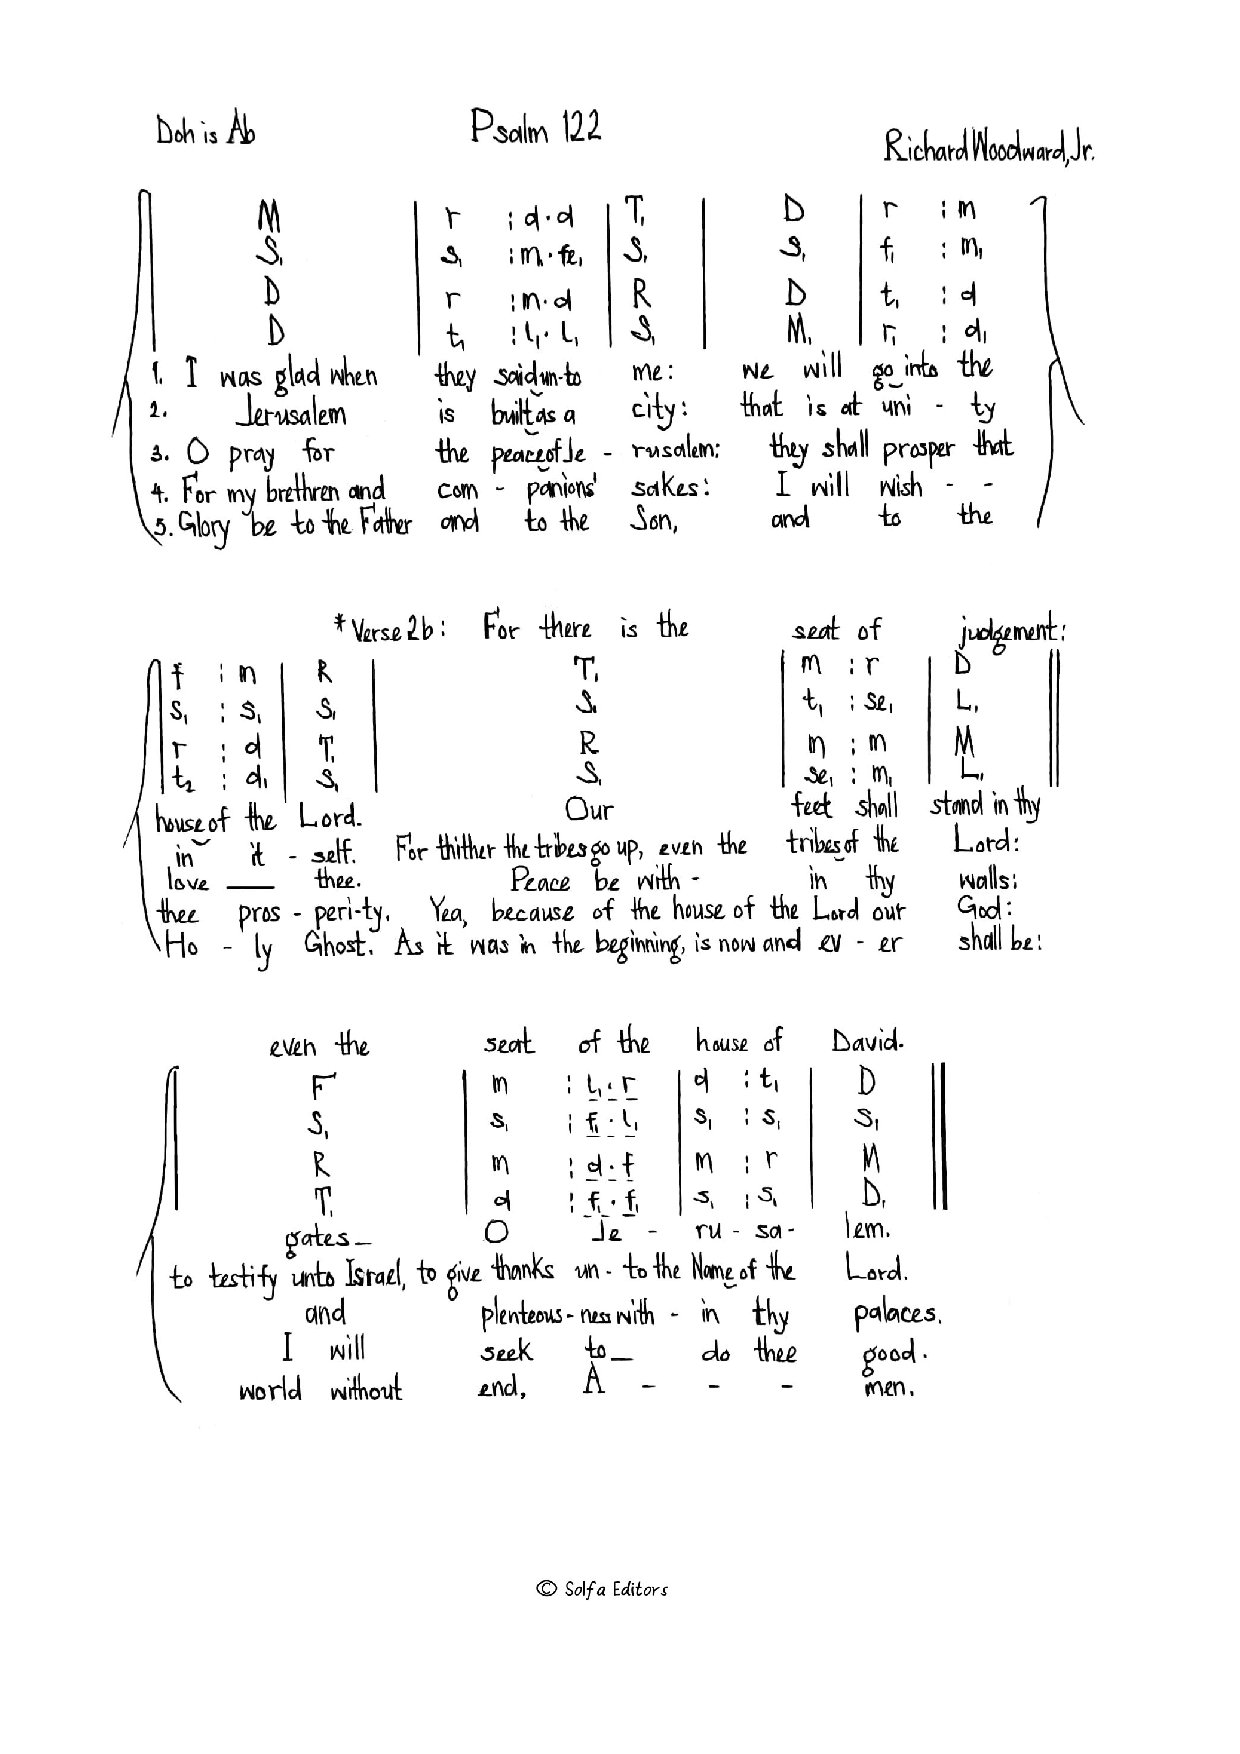 Doh is Ab Psalm 122 Richard Woodward, Jr.
M | r : d . d | T₁ | D | r : m
S₁ | s₁ : m₁ . fe₁ | S₁ | S₁ | f₁ : m₁
D | r : m . d | R | D | t₁ : d
D | t₁ : l₁ . l₁ | S₁ | M₁ | r₁ : d₁
1. I was glad when they said un-to me: we will go into the
2. Jerusalem is built as a city: that is at uni - ty
3. O pray for the peace of Je - rusalem: they shall prosper that
4. For my brethren and com - panions' sakes: I will wish - -
5. Glory be to the Father and to the Son, and to the
*Verse 2b: For there is the seat of judgement:
f : m | R | T₁ | m : r | D ||
s₁ : s₁ | S₁ | S₁ | t₁ : se₁ | L₁ ||
r : d | T₁ | R | m : m | M ||
t₂ : d₁ | S₁ | S₁ | se₁ : m₁ | L₁ ||
house of the Lord. Our feet shall stand in thy
in it - self. For thither the tribes go up, even the tribes of the Lord:
love ___ thee. Peace be with - in thy walls:
thee pros - peri-ty. Yea, because of the house of the Lord our God:
Ho - ly Ghost. As it was in the beginning, is now and ev - er shall be:
even the seat of the house of David.
F | m : l₁ . r | d : t₁ | D ||
S₁ | s₁ : f₁ . l₁ | s₁ : s₁ | S₁ ||
R | m : d . f | m : r | M ||
T₁ | d : f₁ . f₁ | s₁ : s₁ | D₁ ||
gates_ O Je - ru - sa - lem.
to testify unto Israel, to give thanks un - to the Name of the Lord.
and plenteous - ness with - in thy palaces.
I will seek to_ do thee good.
world without end, A - - - men.
© Solfa Editors